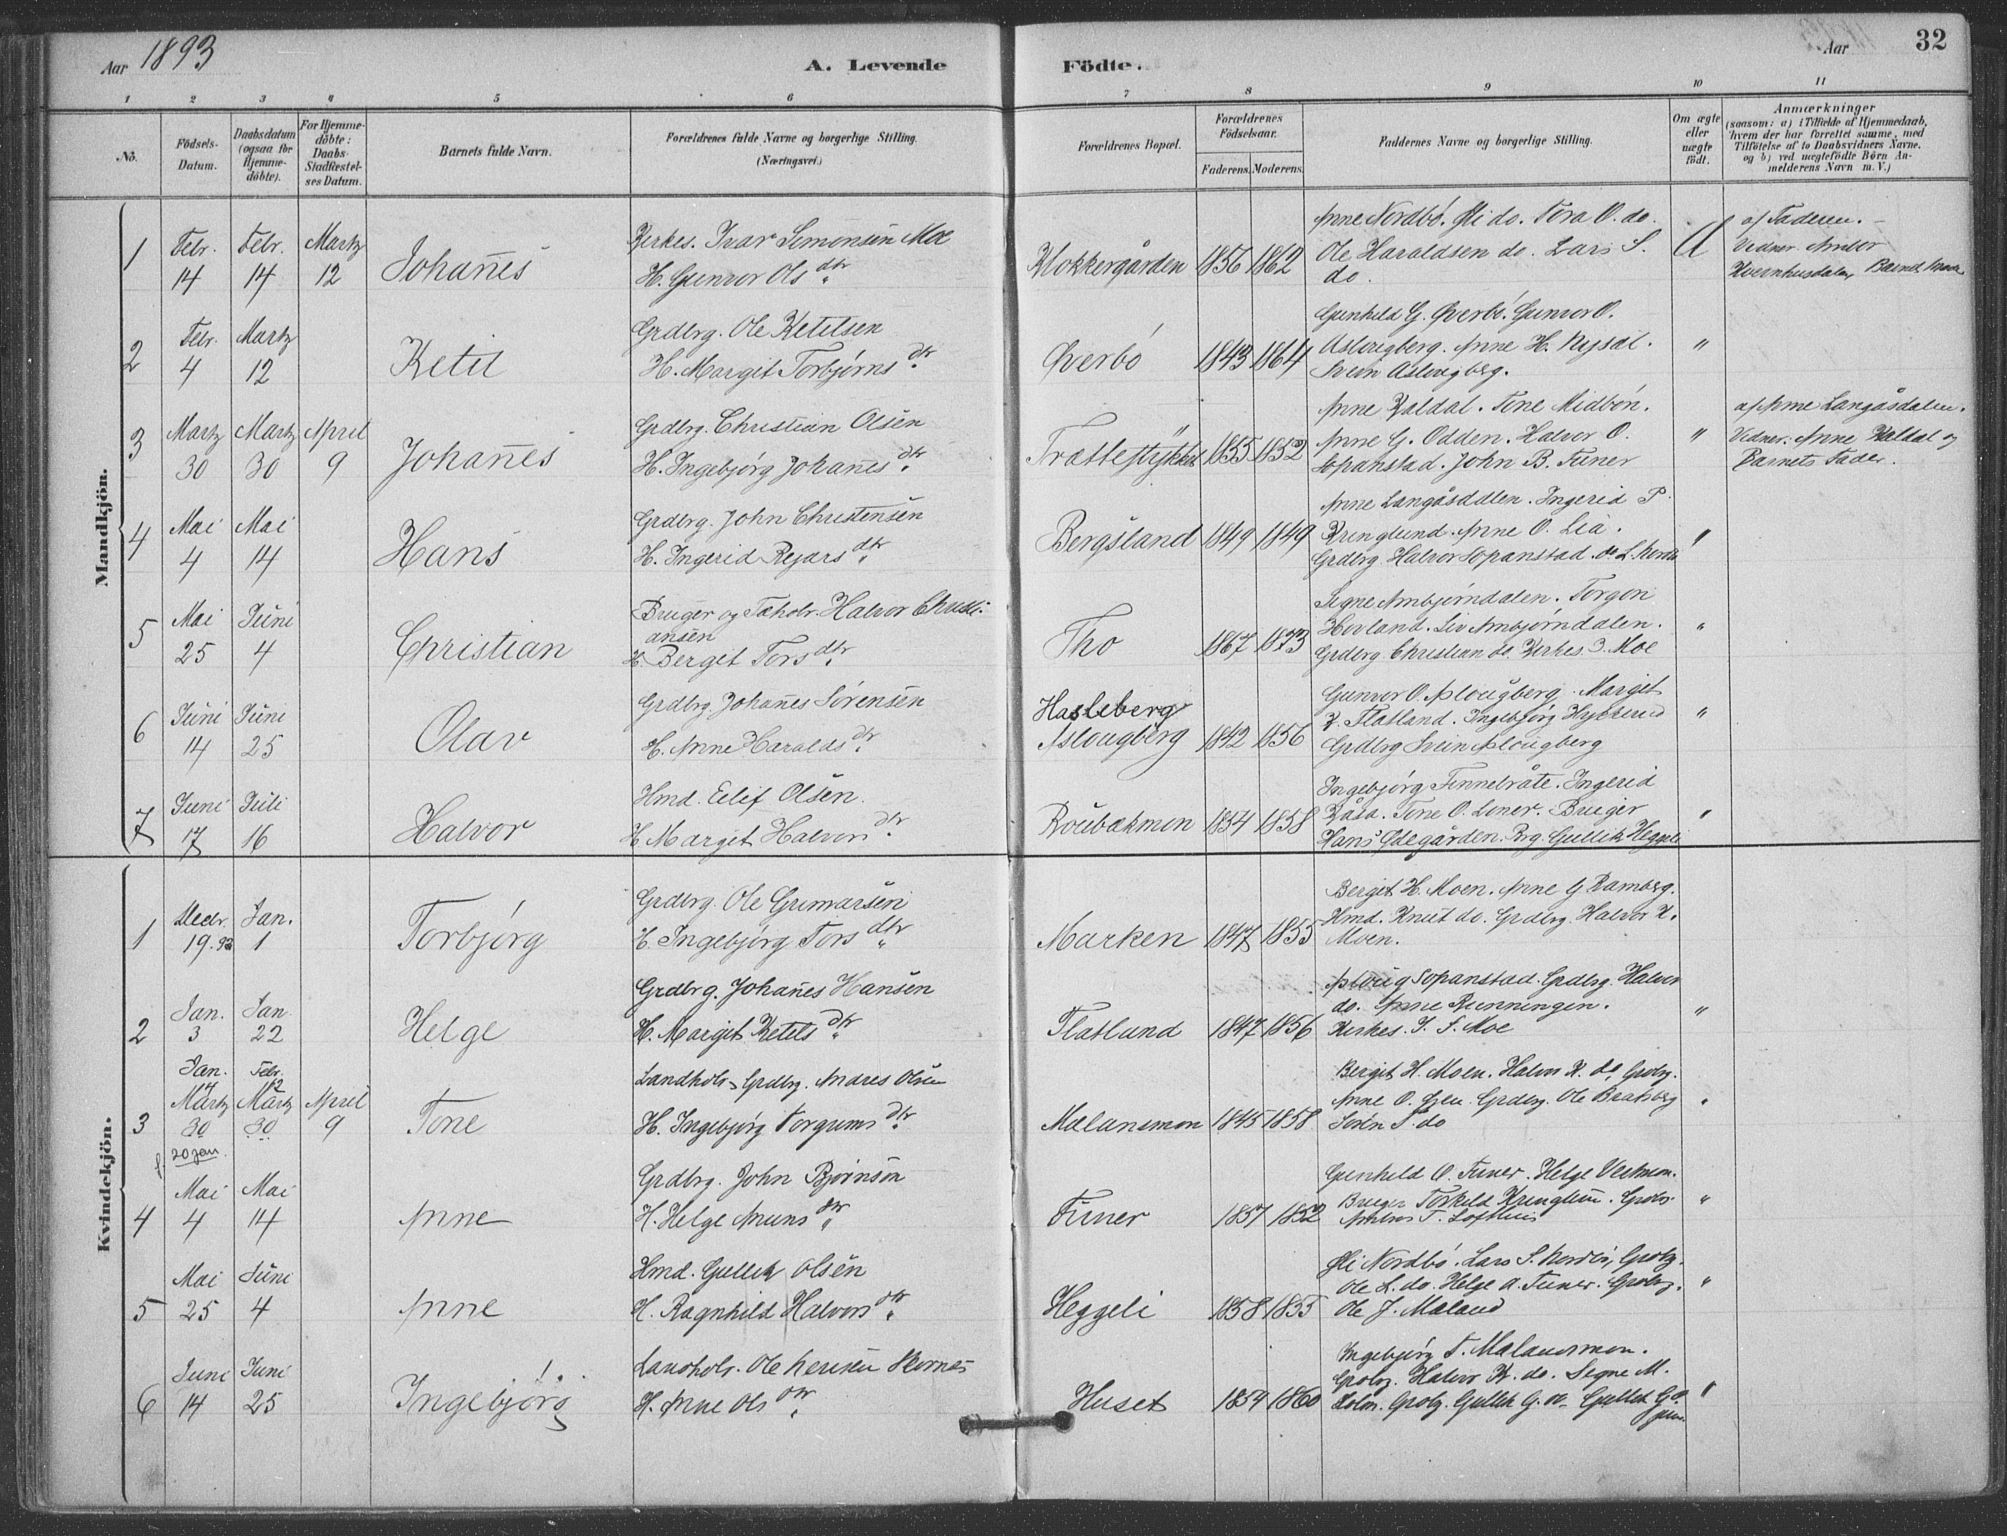 Aar 1893
A. Levende Födte.
Aar
32
1 2 3 4 5 6 7 8 9 10 11
No.
Födsels-Datum.
Daabsdatum (ogsaa for Hjemme-döbte).
For Hjemme-döbte: Daabs-Stadfæstel-ses Datum.
Barnets fulde Navn.
Forældrenes fulde Navne og borgerlige Stilling. (Næringsvei.)
Forældrenes Bopæl.
Forældrenes Födselsaar.
Faderens. Moderens.
Faddernes Navne og borgerlige Stilling.
Om ægte eller uægte födt.
Anmærkninger
(saasom: a) i Tilfælde af Hjemmedaab, hvem der har forrettet samme, med Tilföielse af to Daabsvidners Navne, og b) ved uægtefödte Börn An-melderens Navn m. V.)
Mandkjön.
1 Febr. 14 Febr. 14 Martz 12 Johan̄es
Kirkes. Ivar Simonsen Moe
H. Gunvor Olsdtr
Klokkergården 1856 1862
Anne Nordbö. Øli do. Tora O. do.
Ole Haraldsen do. Lars S.
do.
Æ
af Faderen.
Vidner
2 Febr. 4 Martz 12 Ketil
Grdbrg. Ole Ketilsen
H. Margit Torbjørnsdtr.
Qverbö 1843 1864
Gunhild G. Qverbö. Gunvor O.
Aslougberg. Anne H. Rysdl.
Svein Aslougberg.
"
3 Martz 30 Martz 30 April 9 Johan̄es
Grdbrg. Christian Olsen
H. Ingebjørg Johan̄esdtr.
1855 1852
Anne Kaldal. Tone Midbön.
Anne G. Odden. Halvor O.
Sopanstad. John B. Funer
"
af Anne Langåsdalen.
Vidner. Anne Kaldal og
Barnets Fader.
4 Mai 4 Mai 14 Hans
Grdbrg. John Christensen
H. Ingerid Rejarsdtr.
Bergsland 1849 1849
Anne Langåsdalen. Ingerid P.
Kringlund. Anne O. Lia.
Grdbrg Halvor Sopanstad. do L.
"
5 Mai 25 Juni 4 Christian
Bruger og Halvor Christi-
ansen
H. Berget Torsdtr.
Tho 1867 1873
Signe Ambjørndalen. Torgon
Hovland. Liv Ambjørndalen.
Grdbrg Christian do. Kirkes J. Moe
"
6 Juni 14 Juni 25 Olav
Grdbrg. Johan̄es Sørensen
H. Anne Haraldsdtr.
Hasleberg
Aslougberg 1842 1856
Gunvor O. Aslougberg. Margit
K. Flatland. Ingebjørg
Grdbrg Svein Aslougberg
"
7 Juni 17 Juli 16 Halvor
Hmd. Eilif Olsen.
H. Margit Halvorsdtr.
1854 1858
Ingebjørg Tinnebråte. Ingerid
Råsa. Tone O. Luner. Bruger
Hans Ødegården. Brg. Gullik Heggeli
"
Kvindekjön.
1 Decbr. 19. 92 Jan. 1 Torbjørg
Grdbrg. Ole Gunvarsen
H. Ingebjørg Torsdtr
Marken 1847 1855
Berget H. Moen. Anne G Ramberg.
Hmd. Knut do. Grdbrg. Halvor K.
Moen.
2 Jan. 3 Jan. 22 Helge
Grdbrg. Johan̄es Hansen
H. Margit Ketilsdtr
Flatlund 1847 1856
Asloug Sopanstad. Grdbrg. Halvor
do. Anne Runningen.
Kirkes. J. S. Moe
"
3 Jan. 7 Martz 30 20 jan. Febr. 12 Martz 30 April 9 Tone
Landhdlr. Grdbrg. Andres Olsen
H. Ingebjørg Torgrumsdtr.
Mælansmon 1845 1858
Bergit H. Moen. Halvor K. do. Grdbrg.
Anne O. Grdbrg. Ole Bratsberg
Sørén S. do
"
4 Mai 4 Mai 14 Anne
Grdbrg. John Bjørnsön
H. Helge Amunsdtr
Funer 1857 1852
Gunhild O. Funer. Helge
Bruger Torkild Kringlun. Grdbr.
T. Lofthus
"
5 Mai 25 Juni 4 Anne
Hmd. Gullik Olsén
H. Ragnhild Halvorsdtr.
Heggeli 1858 1855
Øli Nordbö. Lars S. Nordbö, Grdbrg.
Ole L. do. Helge A. Funer. Grdbrg.
Ole J. Maland
"
6 Juni 14 Juni 25 Ingebjörg
Landhdlr. Ole
H. Anne Olsdtr.
Huset 1854 1860
Ingebjørg T. Malansmon.
Grdbrg. Halvor K. do. Signe M.
Grdbrg. Gullik G. do. Gullik G.
"